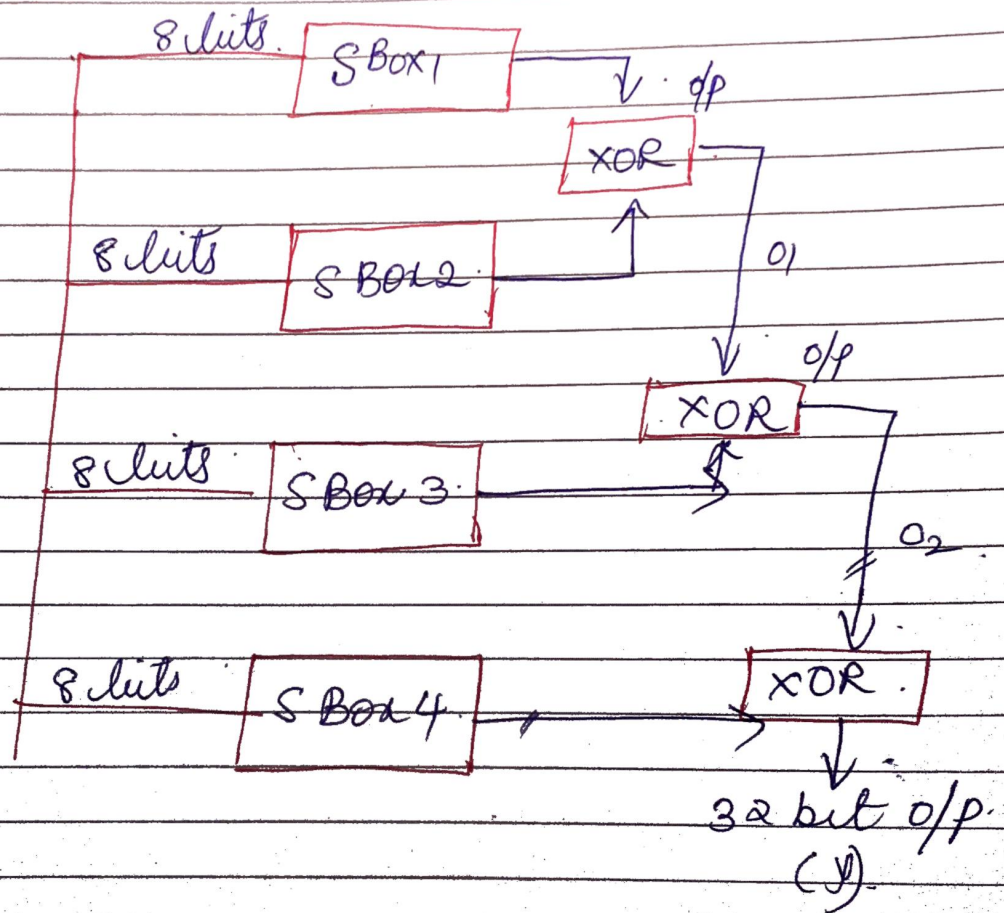 8 bits.
S Box 1
o/p
XOR
8 bits
S Box 2
O1
o/p
XOR
8 bits
S Box 3
O2
8 bits
S Box 4
XOR
32 bit o/p.
(y).